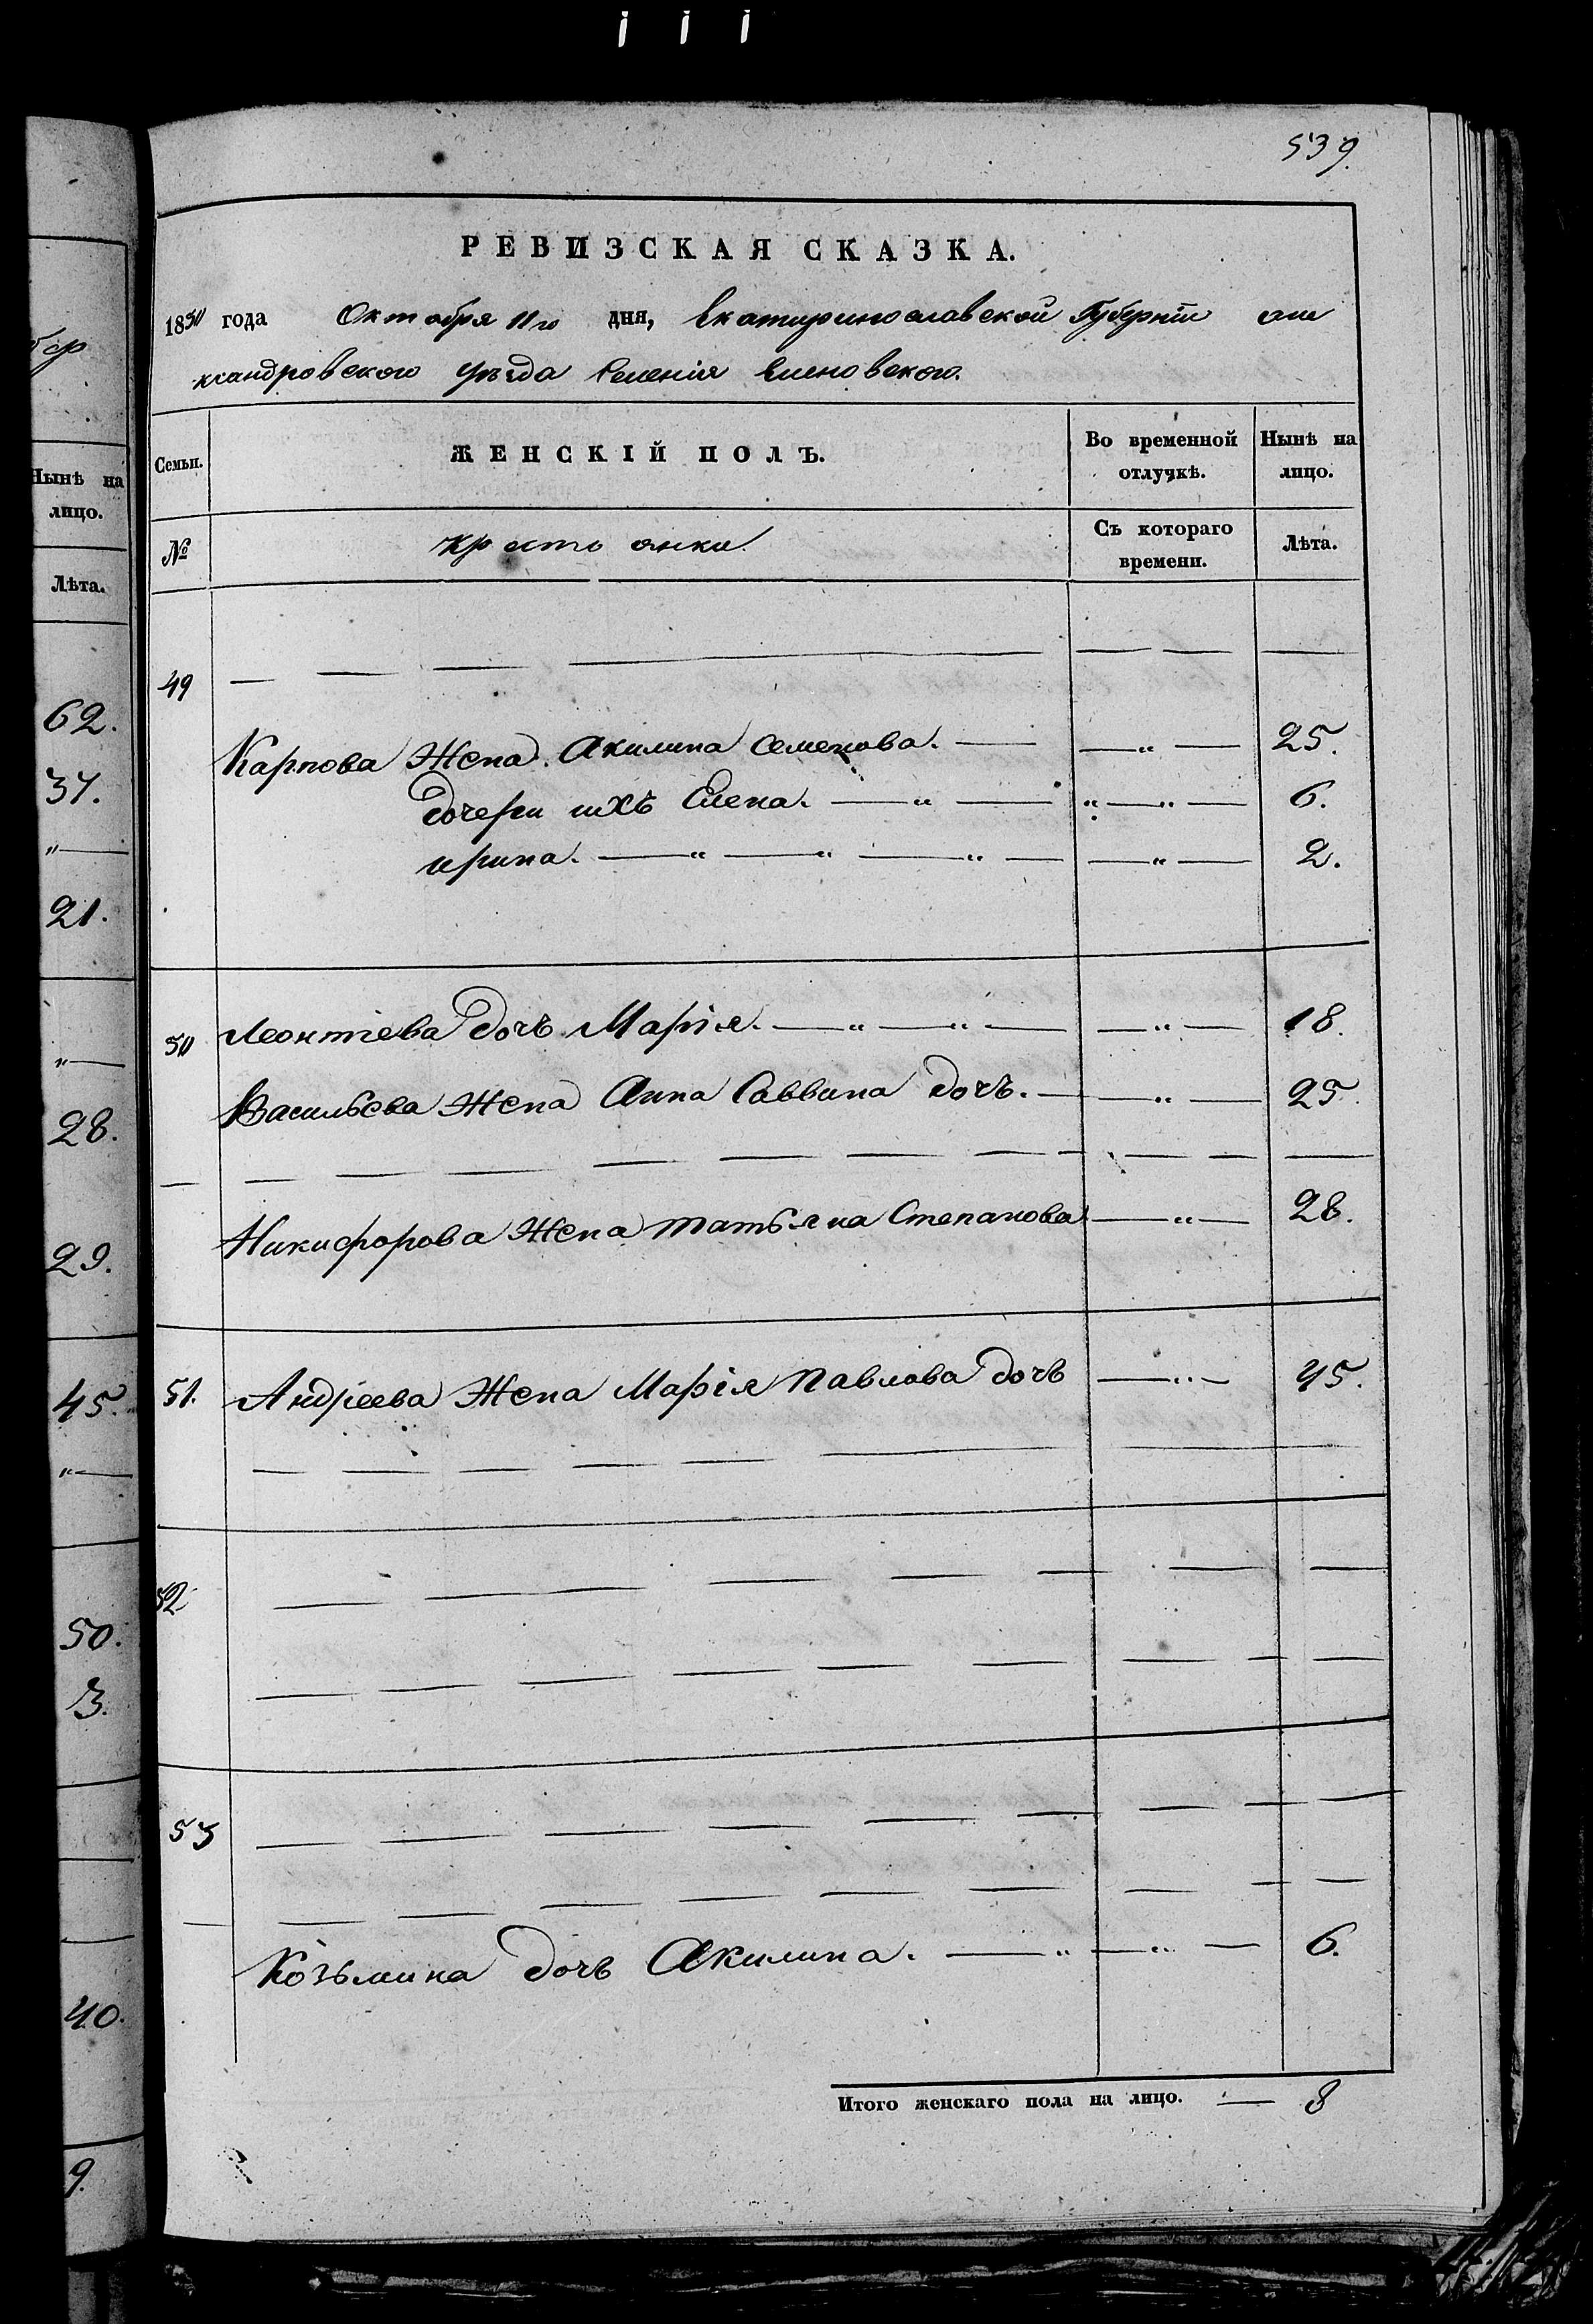 539.
РЕВИЗСКАЯ СКАЗКА.
1850 года Октября 11го дня, Екатеринославской Губернiи але
ксандровского уѣзда Селенiя Еленовского.
Семьи. ЖЕНСКIЙ ПОЛЪ. Во временной отлучкѣ. Нынѣ на лицо.
№ крестьянки. Съ котораго времени. Лѣта.
49
Карпова Жена Акилина Семенова. — „ — 25.
дочери ихъ Елена. — „ — „ — „ — 6.
ирина. — „ — „ — „ — „ — 2.
50 Леонтiева дочь Марiя. — „ — „ — „ — 18.
Васильева Жена Анна Саввина дочь. — „ — 25.
Никифорова Жена татьяна Степанова — „ — 28.
51. Андреева Жена Марiя Павлова дочь — „ — 45.
52
53
Козьмина дочь Акилина. — „ — „ — 6.
Итого женскаго пола на лицо. — 8
Нынѣ на
лицо.
Лѣта.
62.
37.
„ —
21.
„ —
28.
29.
45.
„ —
50.
3.
40.
9.